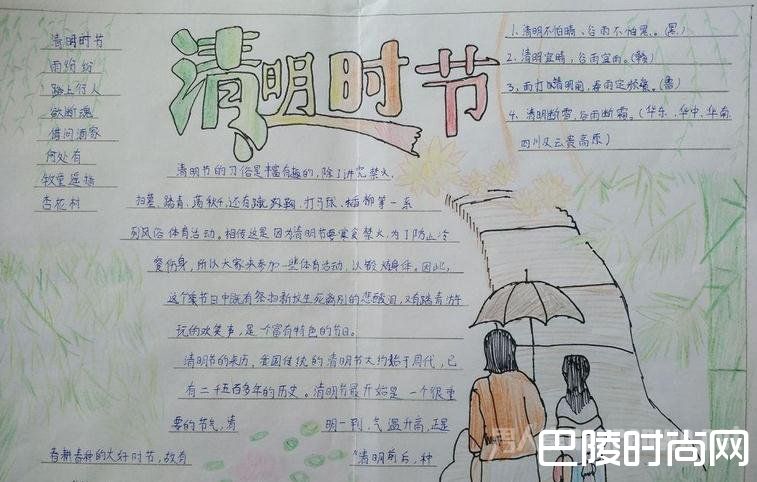 清明时节
清明时节
雨纷纷
路上行人
欲断魂
借问酒家
何处有
牧童遥指
杏花村
1. 清明不怕晴、谷雨不怕。(黑)
2. 清明宜晴，谷雨宜雨。(赣)
3. 雨打清明前，春雨定频繁。(鲁)
4. 清明断雪，谷雨断霜。(华东、华中、华南
四川及云贵高原)
清明节的习俗是丰富有趣的，除了讲究禁火、
扫墓、踏青、荡秋千，还有蹴鞠、打马球、插柳等一系
列风俗体育活动。相传这是因为清明节要寒食禁火，为了防止冷
餐伤身，所以大家来参加一些体育活动，以锻炼身体。因此，
这个节日中既有祭扫新坟生死离别的悲酸泪，又有踏青游
玩的欢笑声，是一个富有特色的节日。
清明节的来历，我国传统的清明节大约始于周代，已
有二千五百多年的历史。清明节最开始是一个很重
要的节气，清 明一到，气温升高，正是
春耕春种的大好时节，故有 "清明前后，种
巴陵时尚网